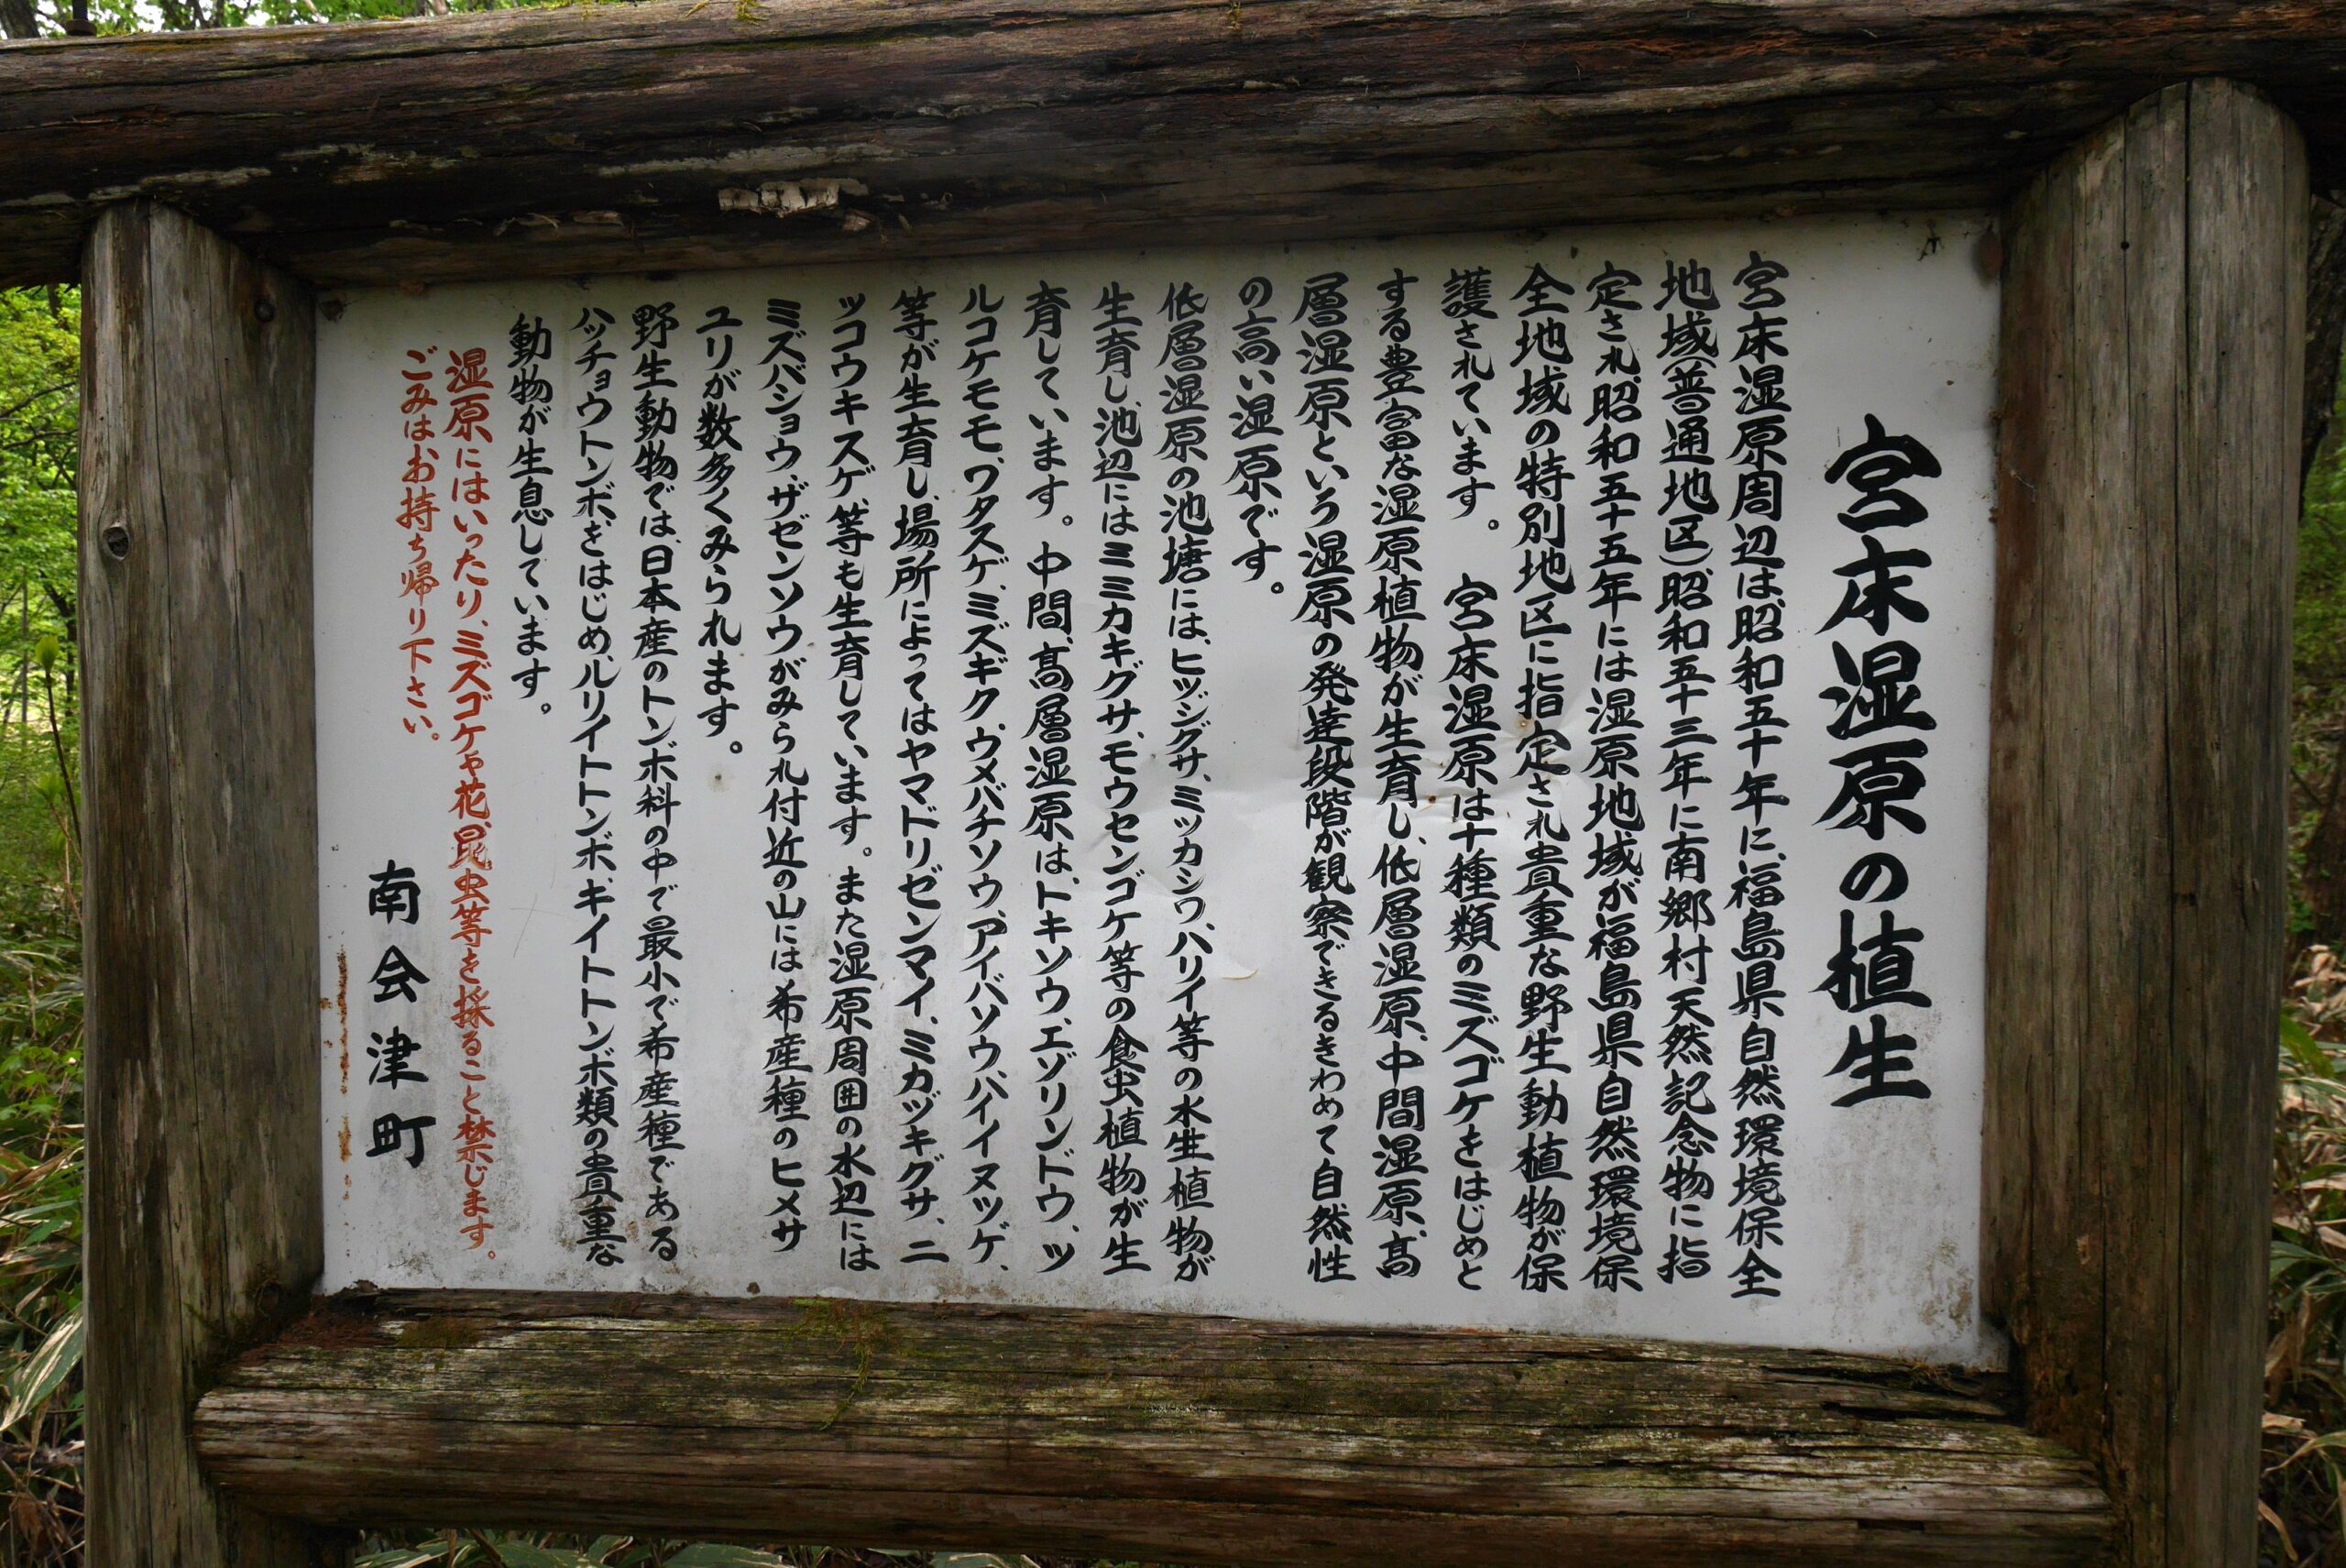 宮床湿原の植生
宮床湿原周辺は昭和五十年に、福島県自然環境保全
地域(普通地区)昭和五十三年に南郷村天然記念物に指
定され、昭和五十五年には湿原地域が福島県自然環境保
全地域の特別地区に指定され貴重な野生動植物が保
護されています。 宮床湿原は十種類のミズゴケをはじめと
する豊富な湿原植物が生育し、低層湿原、中間湿原、高
層湿原という湿原の発達段階が観察できるきわめて自然性
の高い湿原です。
低層湿原の池塘には、ヒツジグサ、ミツカシワ、ハリイ等の水生植物が
生育し、池辺にはミミカキグサ、モウセンゴケ等の食虫植物が生
育しています。中間、高層湿原は、トキソウ、エゾリンドウ、ツ
ルコケモモ、ワタスゲ、ミズギク、ウメバチソウ、アイバソウ、ハイイヌツゲ、
等が生育し、場所によってはヤマドリゼンマイ、ミカヅキグサ、ニ
ッコウキスゲ、等も生育しています。また湿原周囲の水辺には
ミズバショウ、ザゼンソウがみられ付近の山には希産種のヒメサ
ユリが数多くみられます。
野生動物では、日本産のトンボ科の中で最小で希産種である
ハッチョウトンボをはじめ、ルリイトトンボ、キイトトンボ類の貴重な
動物が生息しています。
湿原にはいったり、ミズゴケや花、昆虫等を採ること禁じます。
ごみはお持ち帰り下さい。
南会津町